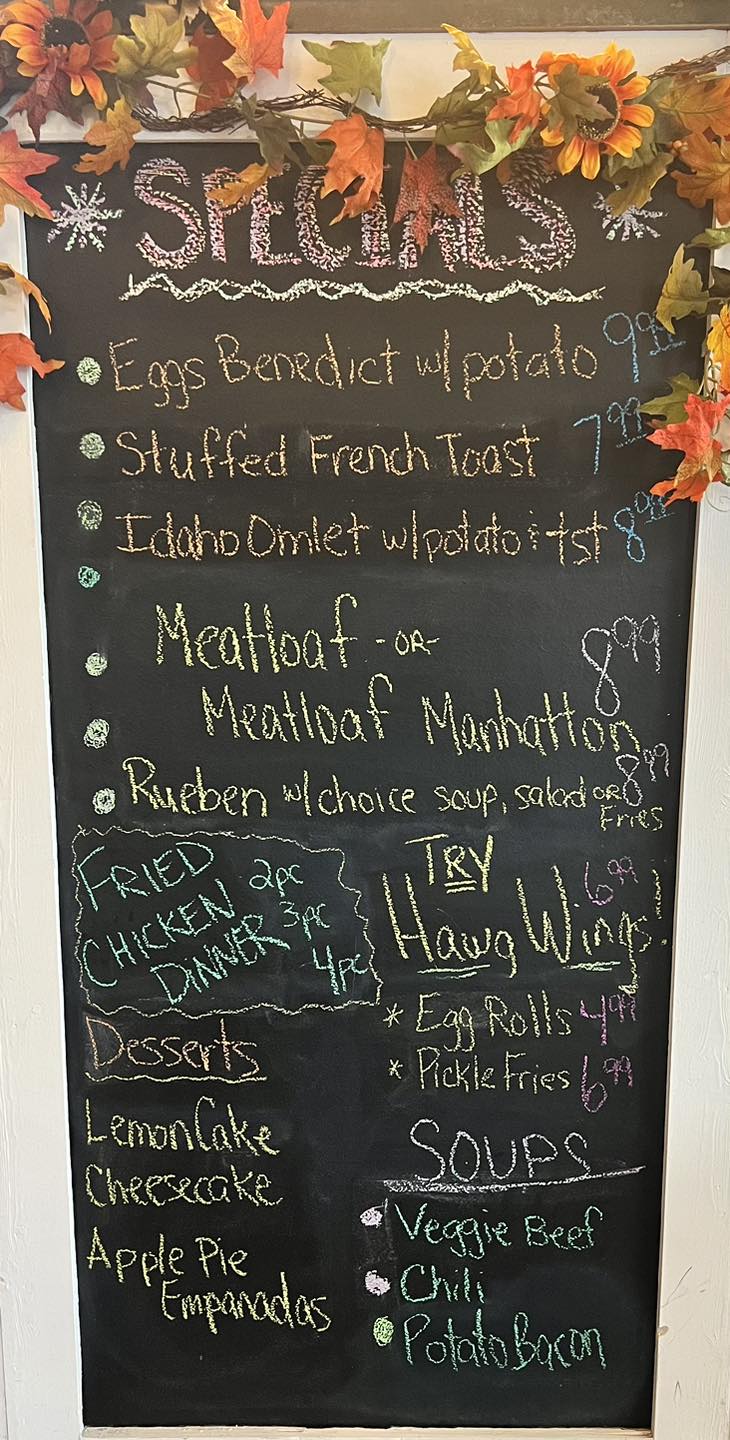 SPECIALS
Eggs Benedict w/potato 9.99
Stuffed French Toast 7.99
Idaho Omlet w/potato & tst 8.99
Meatloaf -OR- 8.99
Meatloaf Manhatton
Rueben w/choice soup, salad OR 8.99
Fries
FRIED 2pc
CHICKEN 3pc
DINNER 4pc
TRY
Hawg Wings! 6.99
* Egg Rolls 4.99
* Pickle Fries 6.99
Desserts
Lemon Cake
Cheesecake
Apple Pie
Empanadas
SOUPS
Veggie Beef
Chili
Potato Bacon